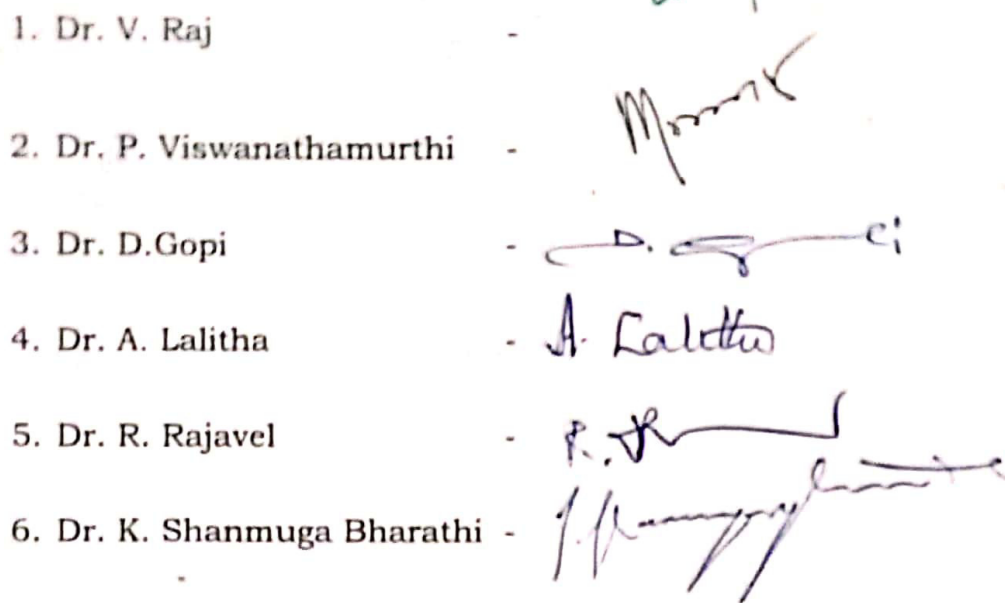 1. Dr. V. Raj -
2. Dr. P. Viswanathamurthi -
3. Dr. D.Gopi - D.
4. Dr. A. Lalitha - A. Lalitha
5. Dr. R. Rajavel - R.
6. Dr. K. Shanmuga Bharathi -